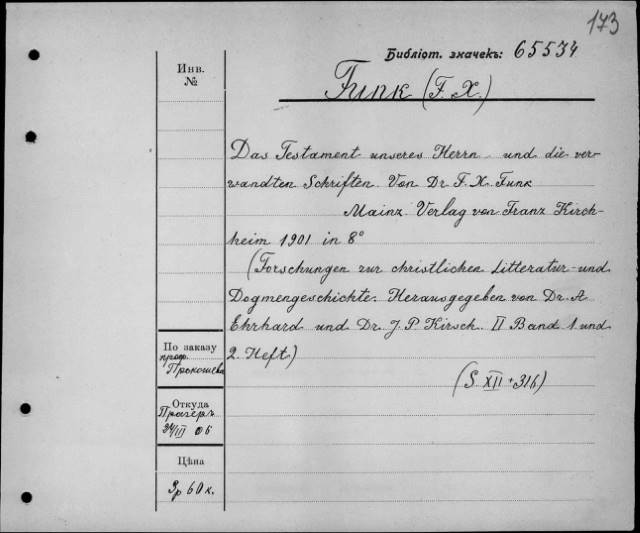 173
Библіот. значекъ: 65534
Инв.
№
Funk (F. X.)
Das Testament unseres Herrn und die ver-
wandten Schriften. Von Dr F. X. Funk
Mainz. Verlag von Franz Kirch-
heim 1901 in 8°
(Forschungen zur christlichen Litteratur- und
Dogmengeschichte. Herausgegeben von Dr. A
Ehrhard und Dr. J. P. Kirsch. II Band 1. und
2. Heft)
(S. XII + 316)
По заказу
проф.
Прокошева
Откуда
Прагеръ
/III 06
Цѣна
3р 60 к.